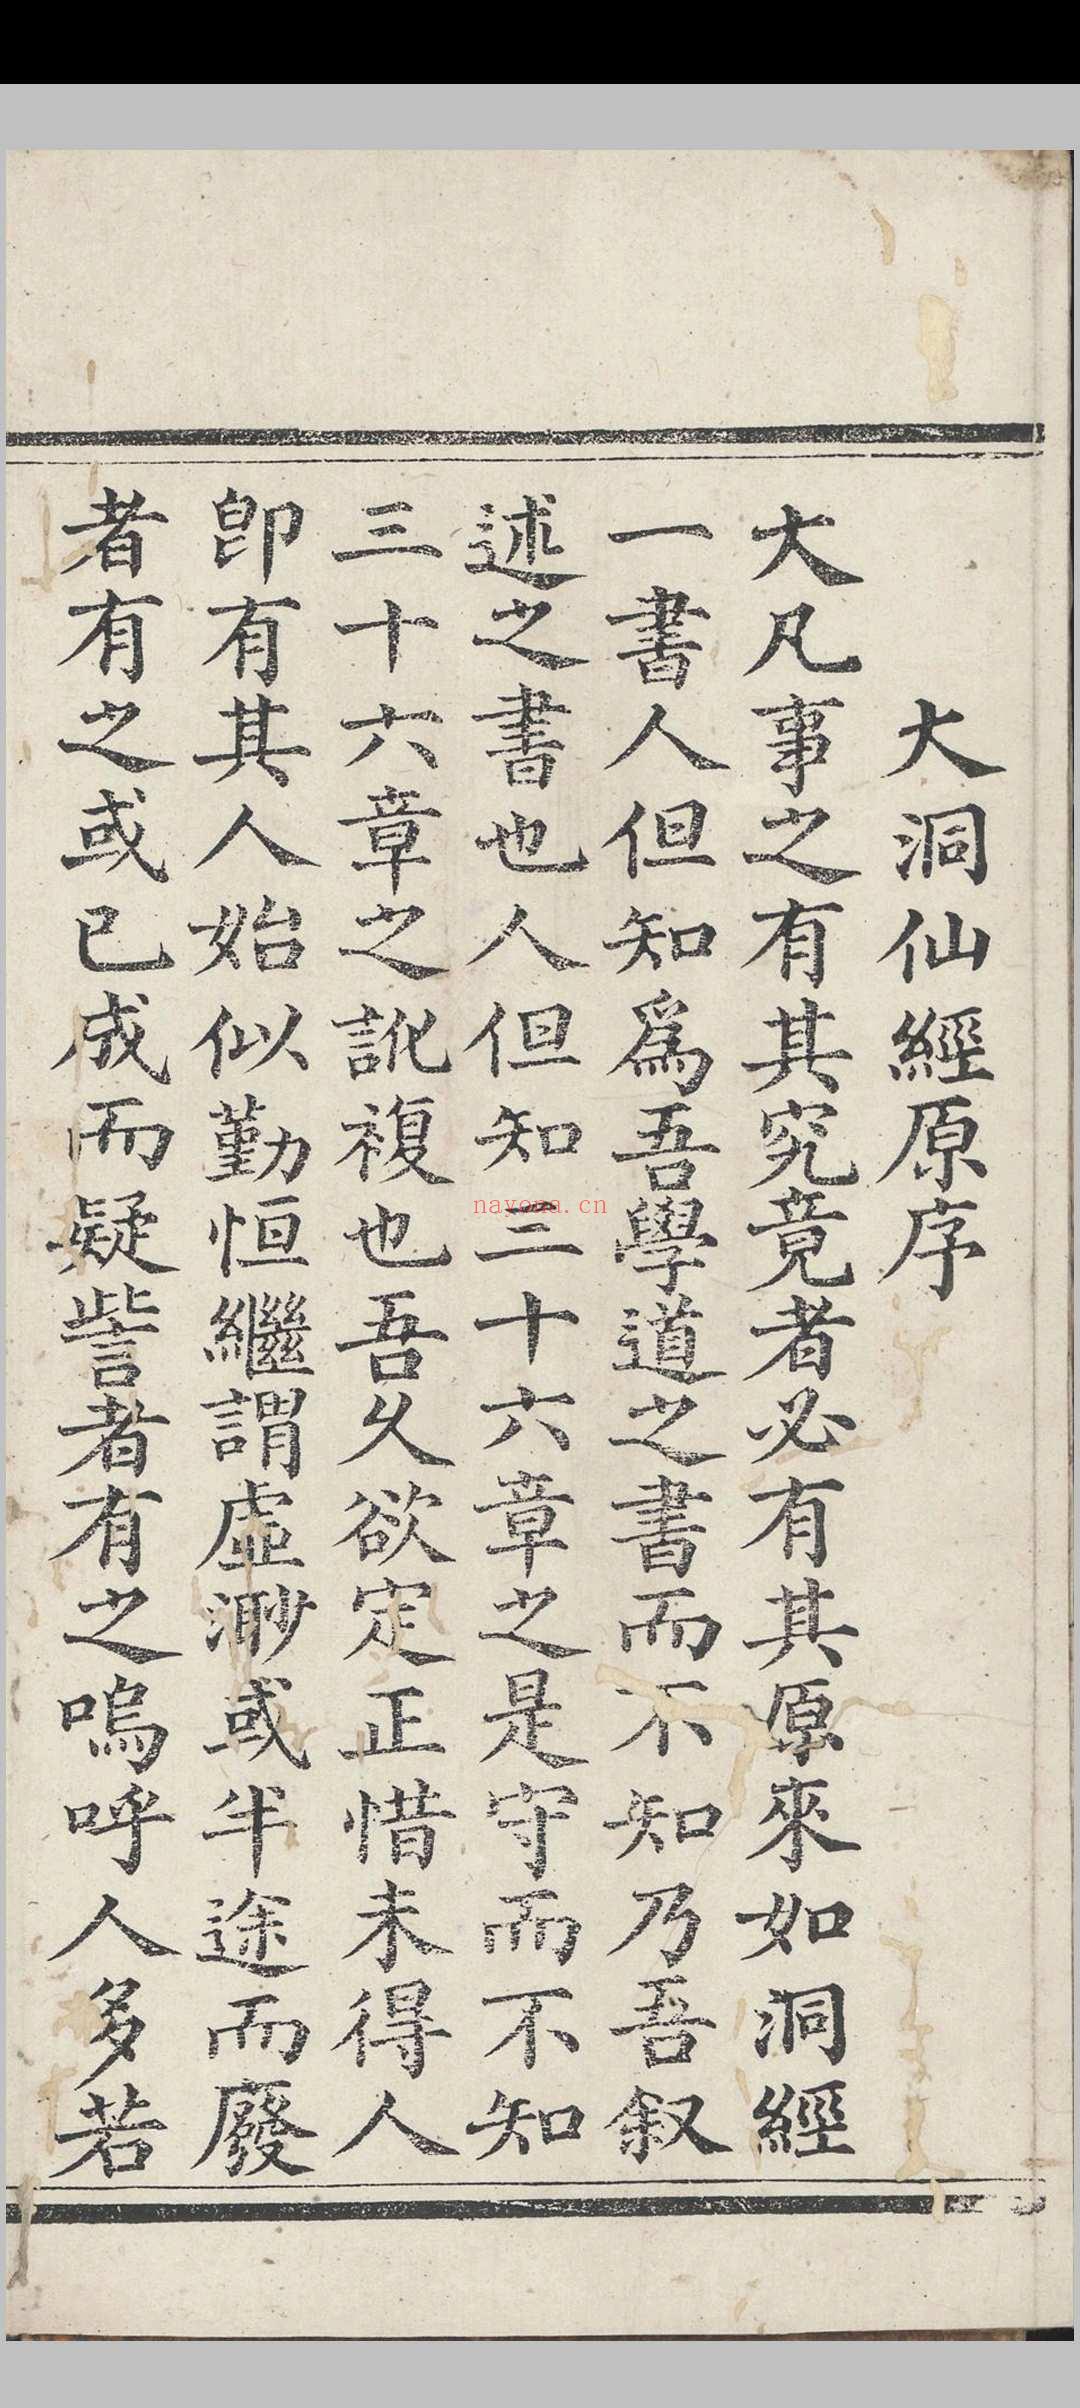 大洞仙經原序
大凡事之有其究竟者必有其原來如洞經
一書人但知爲吾學道之書而不知乃吾叙
述之書也人但知三十六章之是守而不知
三十六章之訛複也吾久欲定正惜未得人
卽有其人始似勤恒繼謂虛渺或半途而廢
者有之或已成而疑訾者有之嗚呼人多若
nayona.cn